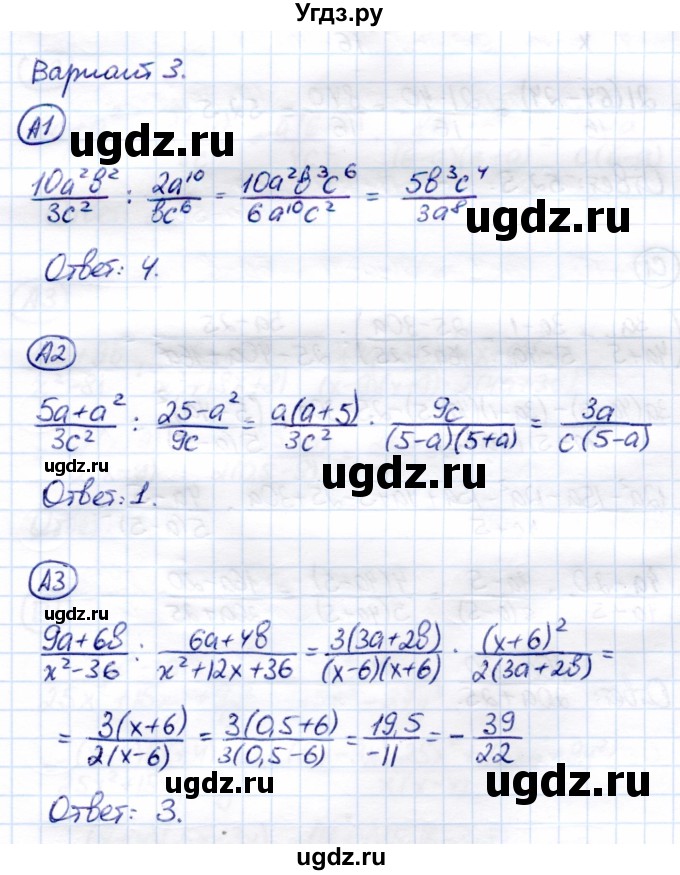 Угдз.ру
Вариант 3.
А1
ugdz.ru
10a²b²/3c² : 2a¹⁰/bc⁶ = 10a²b³c⁶/6a¹⁰c² = 5b³c⁴/3a⁸
ugdz.ru
Ответ: 4.
А2
ugdz.ru
5a+a²/3c² : 25-a²/9c = a(a+5)/3c² · 9c/(5-a)(5+a) = 3a/c(5-a)
ugdz.ru
ugdz.ru
Ответ: 1.
А3
ugdz.ru
ugdz.ru
9a+6b/x²-36 : 6a+4b/x²+12x+36 = 3(3a+2b)/(x-6)(x+6) · (x+6)²/2(3a+2b) =
= 3(x+6)/2(x-6) = 3(0,5+6)/3(0,5-6) = 19,5/-11 = - 39/22
ugdz.ru
ugdz.ru
Ответ: 3.
ugdz.ru